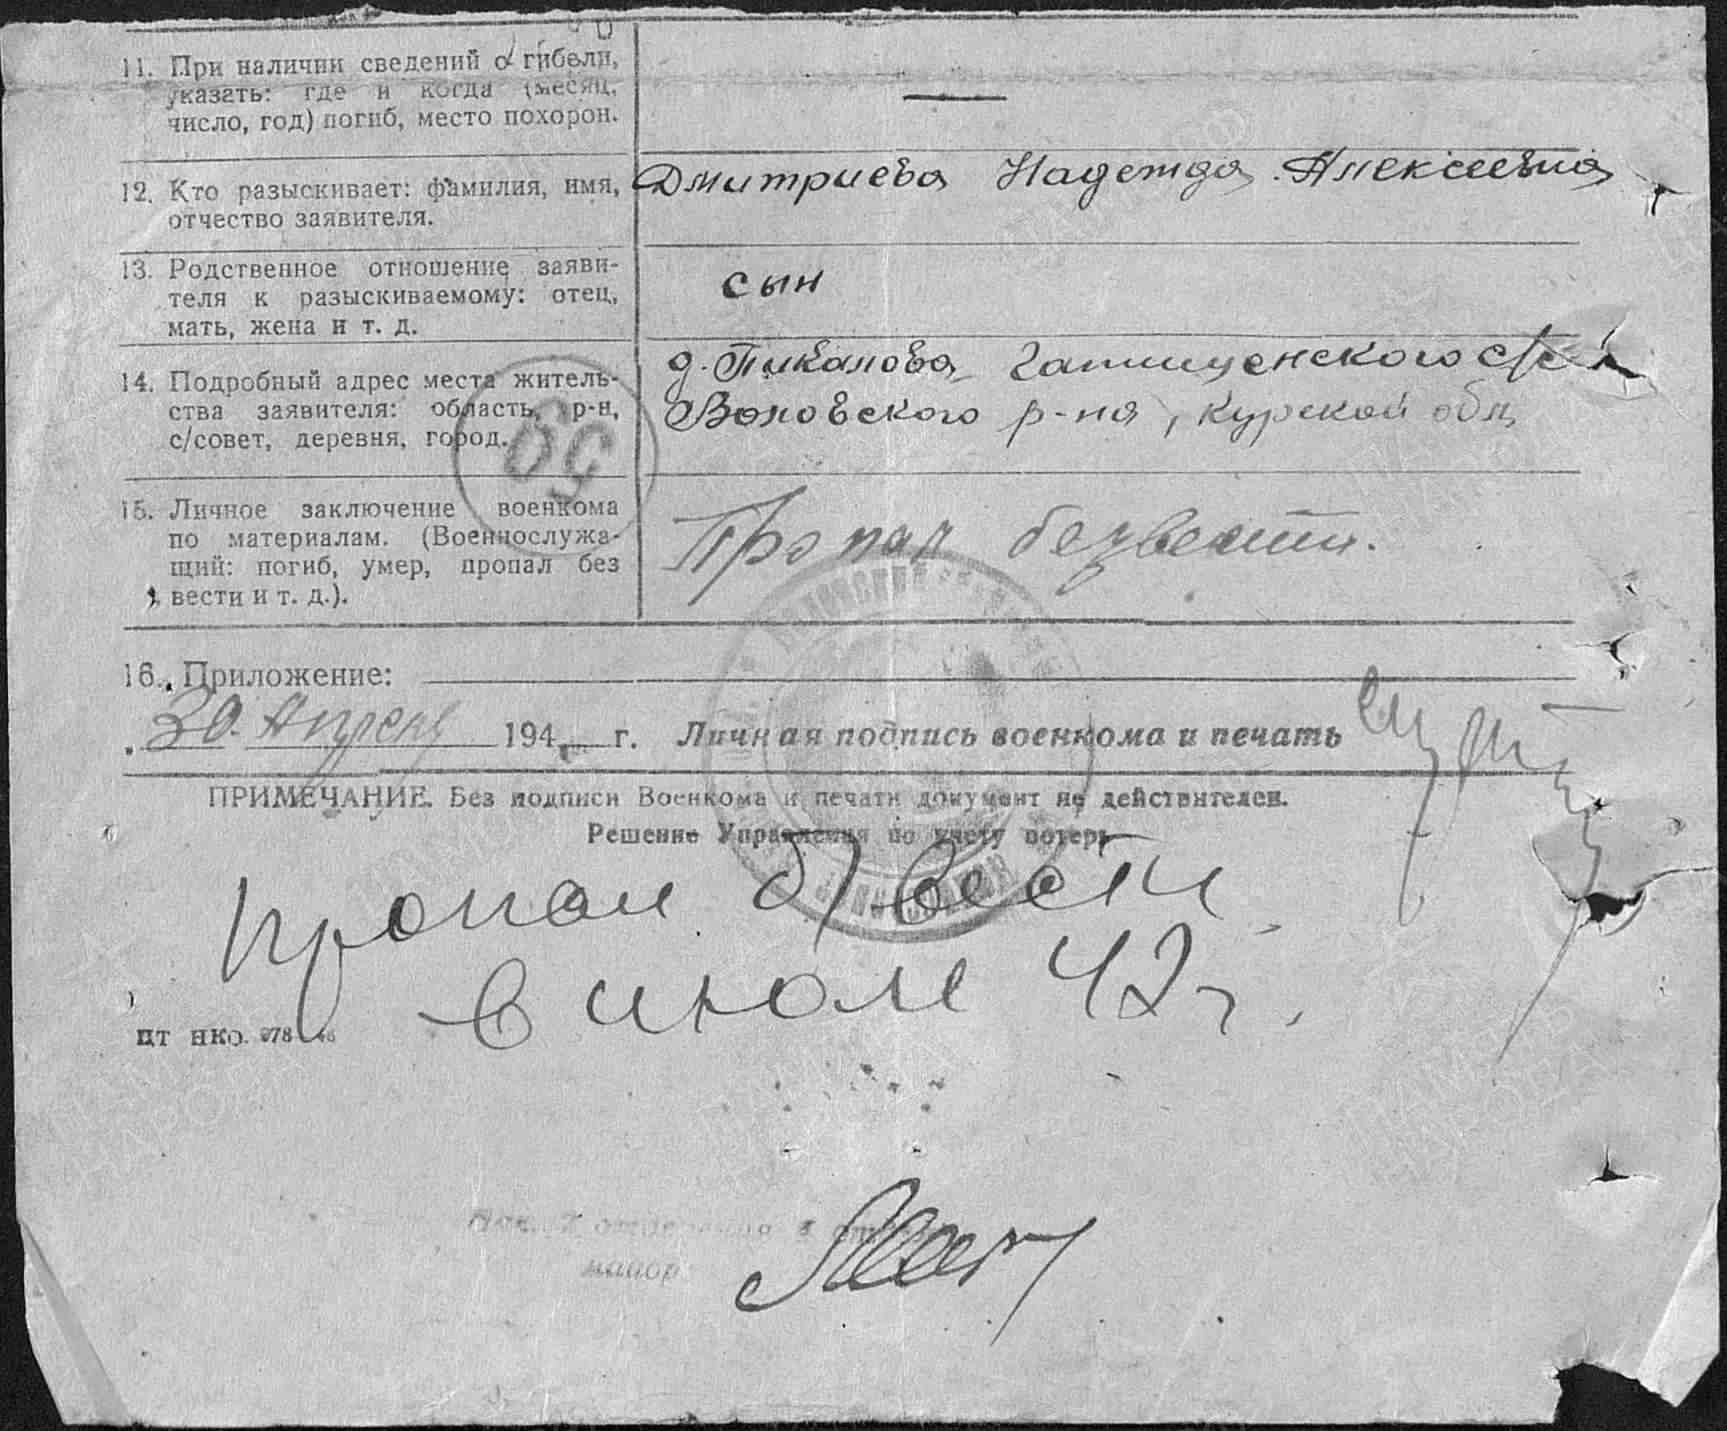 11. При наличии сведений о гибели,
указать: где и когда (месяц,
число, год) погиб, место похорон.
—
12. Кто разыскивает: фамилия, имя,
отчество заявителя.
Дмитриева Надежда Алексеевна
13. Родственное отношение заяви-
теля к разыскиваемому: отец,
мать, жена и т. д.
сын
14. Подробный адрес места житель-
ства заявителя: область, р-н,
с/совет, деревня, город.
д. Пикалова Гатищенского с/с
Воловского р-на, Курской обл
59
15. Личное заключение военкома
по материалам. (Военнослужа-
щий: погиб, умер, пропал без
вести и т. д.).
Пропал безвести.
16. Приложение:
30. Апреля 194 г. Личная подпись военкома и печать
ПРИМЕЧАНИЕ. Без подписи Военкома и печати документ не действителен.
Решение Управления по учету потерь
пропал б/вести
в июле 42 г.
цт нко.
майор